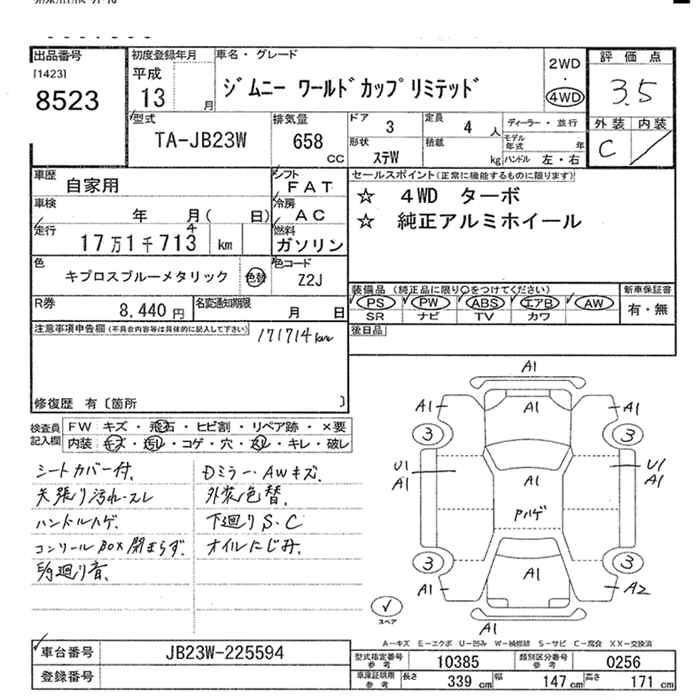 出品番号
[1423]
8523
初度登録年月
平成
13 月
車名・グレード
ジムニー ワールドカップリミテッド
2WD
・
4WD
評価点
3.5
外装 内装
C
型式
TA-JB23W
排気量
658
cc
ドア 3
定員 4 人
形状 ステW
積載 kg
ディーラー・並行
モデル年式 年
ハンドル 左・右
車歴 自家用
シフト
FAT
車検 年 月( 日)
冷房
AC
走行 17万1千713 km
4
燃料
ガソリン
色 キプロスブルーメタリック 色替
色コード
Z2J
R券 8,440円
名変通知期限 月 日
セールスポイント(正常に機能するものに限ります)
☆ 4WD ターボ
☆ 純正アルミホイール
装備品 (純正品に限り○をつけてください)
PS PW ABS エアB AW
SR ナビ TV カワ
新車保証書
有・無
後日品
注意事項申告欄(不具合内容等は具体的に記入して下さい)
171714km
修復歴 有〔箇所 〕
検査員記入欄
FW キズ・飛石・ヒビ割・リペア跡・×要
内装 キズ・汚れ・コゲ・穴・スレ・キレ・破レ
シートカバー付.
天張り汚れ・スレ
ハンドルハゲ.
コンソールBOX閉まらず.
E/g廻り音.
Dミラー・AWキズ.
外装色替.
下廻りS・C
オイルにじみ.
A1
A1
A1 A1
3 3
U1 U1
A1 A1
A1
Aハゲ
3 3
A1
A1 A2
A1
スペア
A－キズ E－エクボ U－凹み W－補修跡 S－サビ C－腐食 XX－交換済
車台番号 JB23W-225594
登録番号
型式指定番号
参考
10385
類別区分番号
参考
0256
車庫証明用
参考
長さ 339 cm
幅 147 cm
高さ 171 cm